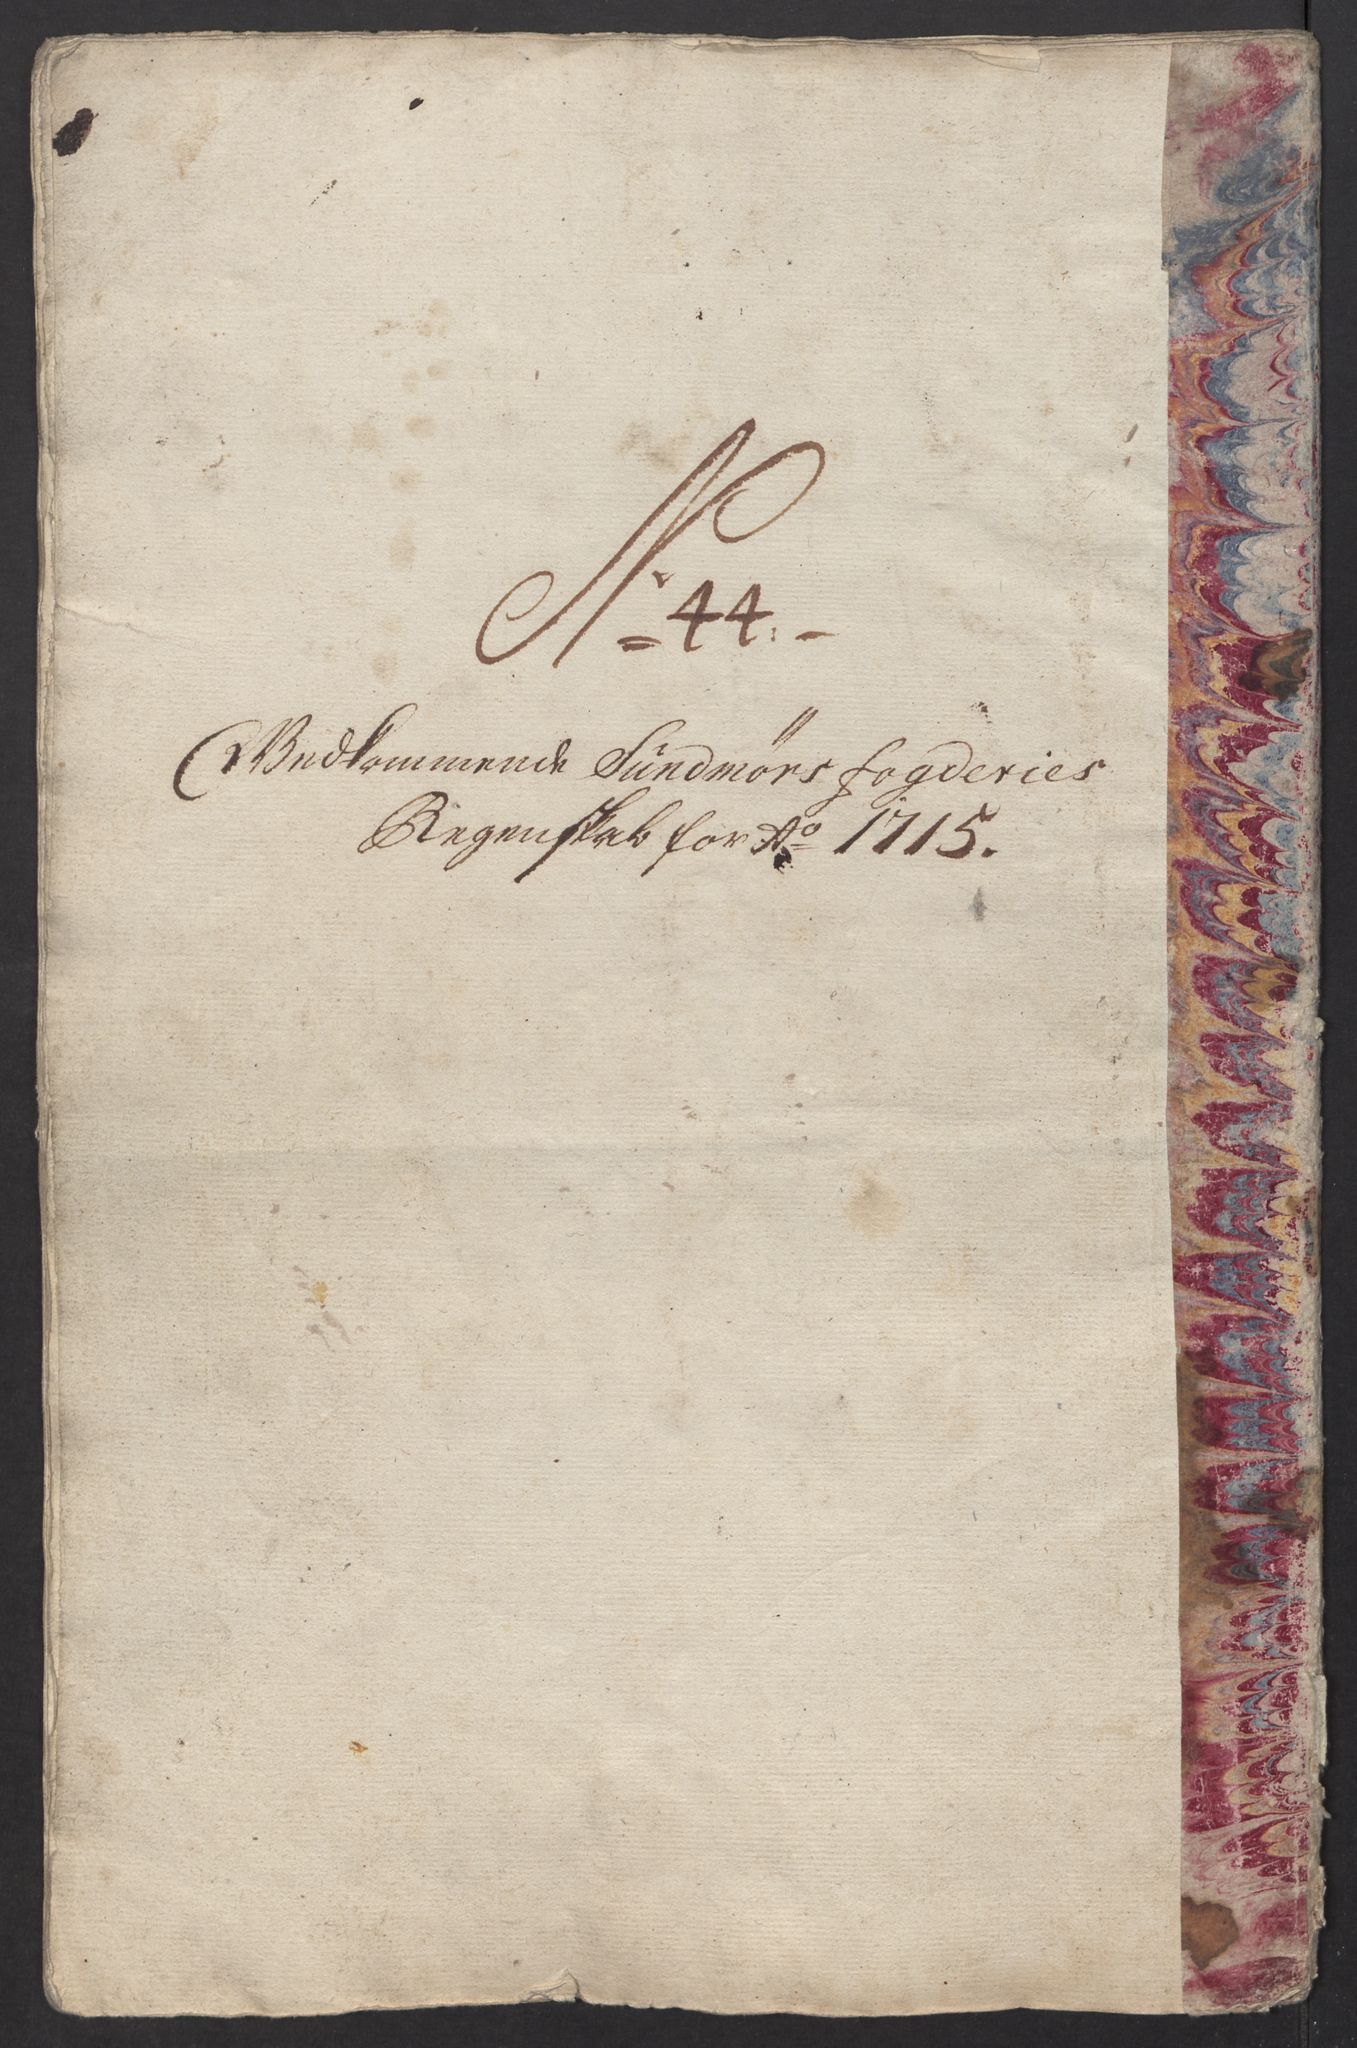 No 44.
Vedkommende Sundmörs fogderies
Regenskab for Ao 1715.